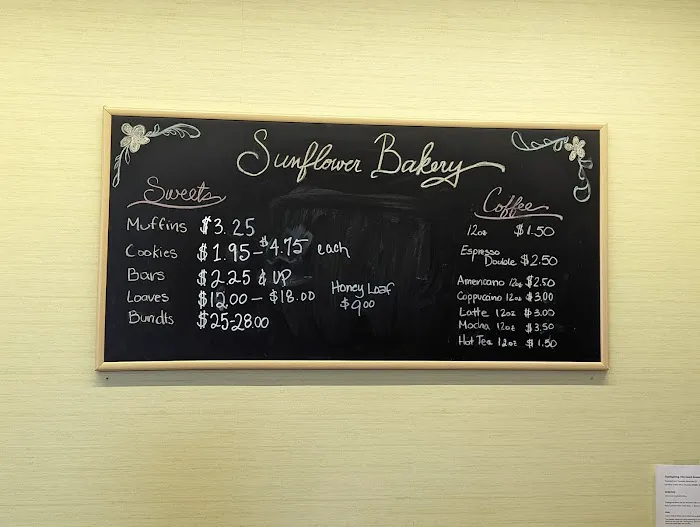 Sunflower Bakery
Sweets
Muffins $3.25
Cookies $1.95-$4.75 each
Bars $2.25 & UP
Loaves $12.00 - $18.00
Bundts $25-28.00
Honey Loaf
$9.00
Coffee
12oz $1.50
Espresso
Double $2.50
Americano 12oz $2.50
Coppuccino 12oz $3.00
Latte 12oz $3.00
Mocha 12oz $3.50
Hot Tea 12oz $1.50